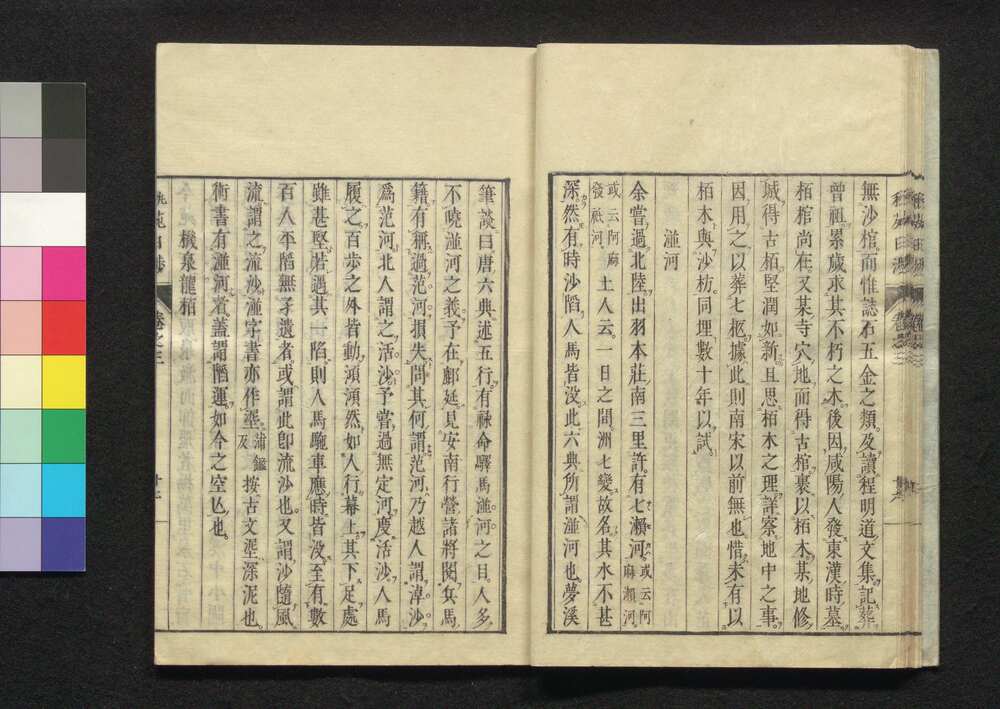 無沙棺而惟誌石五金之類及讀程明道文集記葬
曾祖累歲求其不朽之木後因咸陽人發東漢時墓
栢棺尚在又某寺穴地而得古棺裹以栢木某地修
城得古栢堅潤如新且思栢木之理詳察地中之事
因用之以葬七柩據此則南宋以前無也惜未有以
栢木與沙枋同埋數十年以試
湴河
余嘗過北陸出羽本莊南三里許有七瀨河或云阿麻瀨河
或云阿麻發瀨河土人云一日之間洲七變故名其水不甚
深然有時沙陷人馬皆没此六典所謂湴河也夢溪
筆談曰唐六典述五行有祿命驛馬湴河之目人多
不曉湴河之義予在鄜延見安南行營諸將閱兵馬
籍有稱過范河損失問其何謂范河乃越人謂淖沙
爲范河北人謂之活沙予嘗過無定河度活沙人馬
履之百步之外皆動澒澒然如人行幕上其下足處
雖甚堅若遇其一陷則人馬駞車應時皆没至有數
百人平陷無孑遺者或謂此卽流沙也又謂沙隨風
流謂之流沙湴字書亦作埿蒲鑑反按古文埿深泥也
術書有湴河者蓋謂陷運如今之空亡也
機泉龍栢
卷之三